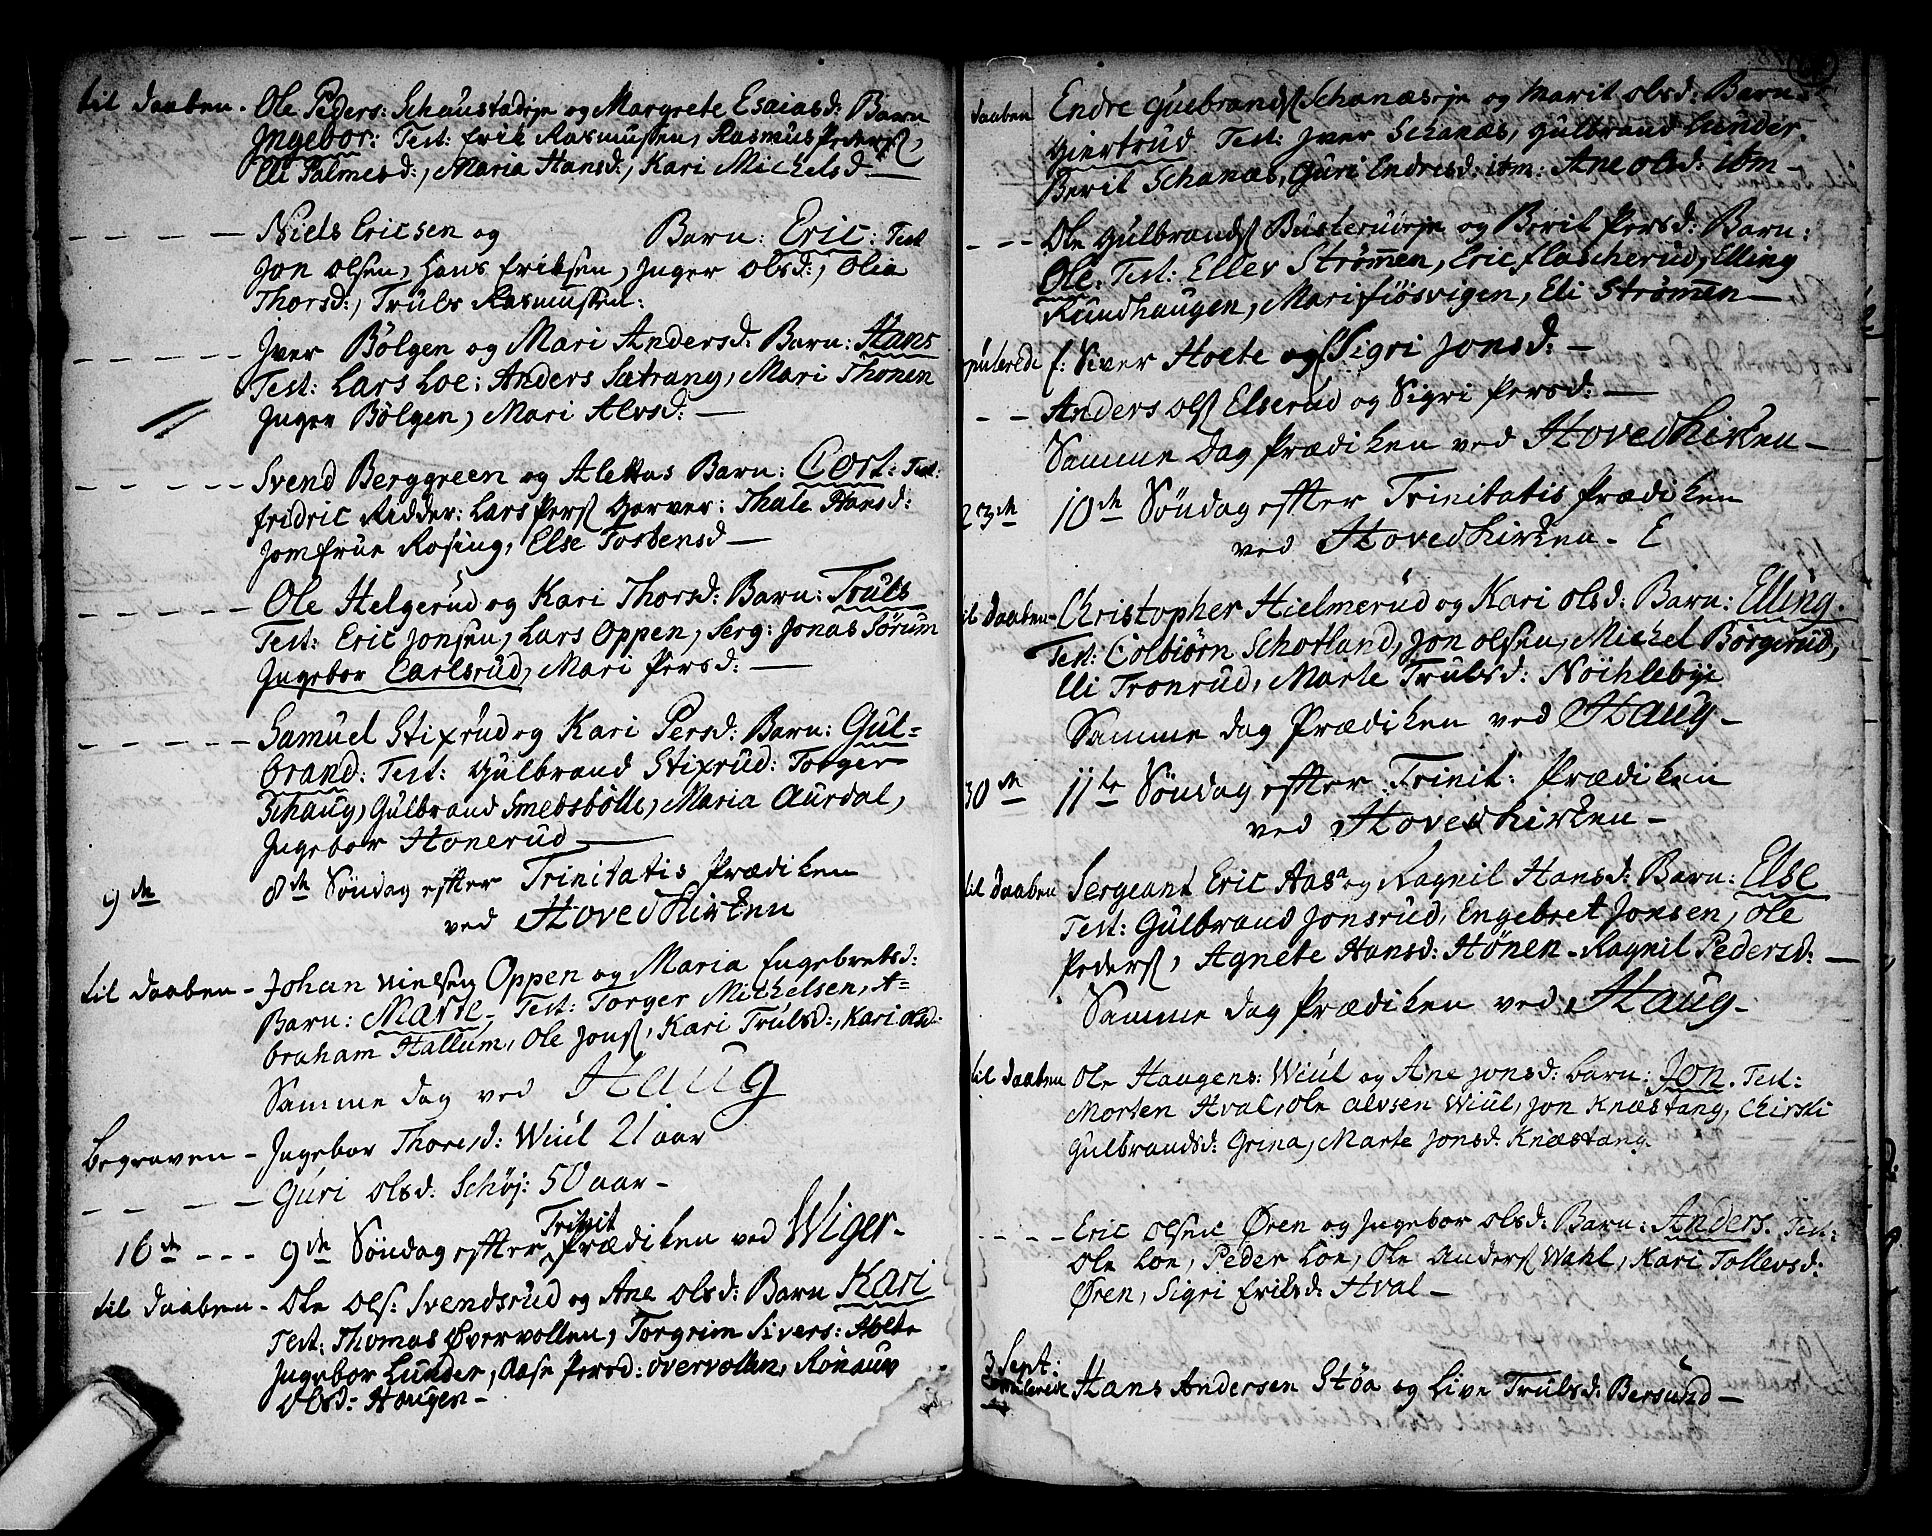 til daaben - Ole Peders: Schaustadeje og Margrete Esaiasd: Barn
Ingebor: Test: Erik Rasmussen, Rasmus Peders,
Eli Palmesd:, Maria Hansd:, Kari Michelsd —
— — — — Niels Ericsen og Barn: Eric: Test
Jon Olsen, Hans Eriksen, Inger Olsd:, Olia
Thorsd:, Truls Rasmussen:
— — — — Iver Bölgen og Mari Andersd: Barn: Hans
Test: Lars Loe: Anders Sætrang, Mari Thonen
Inger Bölgen, Mari Alvsd: —
— — — — Svend Berggreen og Alettas Barn: Cort: Test:
Fridric Ridder: Lars Pers Garver: Thale Hansd:
Jomfrue Rosing, Else Tostensd —
— — — — Ole Helgerud og Kari Thorsd: Barn: Truls
Test: Eric Jonsen, Lars Oppen, Serg: Jonas Sörum
Ingebor Carlsrud, Mari Persd: —
— — — — Samuel Stixrud og Kari Persd: Barn: Gul=
brand: Test: Gulbrand Stixrud: Torger
Schaug, Gulbrand Smedsbölle, Maria Aurdal,
Ingebor Honerud —
9de 8de Söndag efter Trinitatis Prædiken
ved Hovedkirken
til daaben - Johan Nielsen Oppen og Maria Engebretsd:
Barn: Marte, Test: Torger Michelsen, A=
braham Hallum, Ole Jons, Kari Trulsd:, Kari Olsd:
Samme dag ved Haug
Begraven - Ingebor Thoresd: Wiul 21 aar
— — — — Guri Olsd: Schöj: 50 aar -
16de - - - 9de Söndag efter Trinit Prædiken ved Wiger -
til daaben - Ole Ols: Svendsrud og Ane Olsd: Barn Kari
Test: Thomas Øvervollen, Torgrim Sivers: Holte
Ingebor Lunder, Aase Persd: Overvollen, Rönauv
Olsd: Haugen -
daaben Endre Guebrands Schanæseje og Marit Olsd: Barn
Giertrud Test: Iver Schanæs, Gulbrand Lunder,
Berit Schanæs, Guri Endresd: ibm: Ane Olsd: ibm -
- - - Ole Gulbrands Busterudeje og Berit Persd: Barn:
Ole: Test: Ellev Strømmen, Eric Flascherud, Elling
Rundhaugen, Mari Fiösvigen, Eli Strømmen -
f: Siver Holte og Sigri Jonsd: —
- - Anders Ols Elserud og Sigri Persd: —
Samme Dag Prædiken ved Hovedkirken -
23de 10de Söndag efter Trinitatis Prædiken
ved Hovedkirken -
til daaben - Christopher Hielmerud og Kari Olsd: Barn: Elling.
Test: Colbiörn Schotland, Jon Olsen, Michel Börgerud,
Eli Tronrud, Marte Trulsd: Nöchlebye
Samme dag Prædiken ved Haug -
30de 11te Söndag efter Trinit: Prædiken
ved Hovedkirken -
til daaben Sergeant Eric Aasa og Ragnil Hansd: Barn: Else
Test: Gulbrand Jonsrud, Engebret Jonsen, Ole
Peders, Agnete Hansd: Hönen - Ragnil Pedersd: —
Samme dag Prædiken ved Haug -
til daaben Ole Haugens: Wiul og Ane Jonsd: barn: Jon. Test:
Morten Hval, Ole Alvsen Wiul, Jon Knæstang, Chirsti
Gulbrandsd: Grina, Marte Jonsd: Knæstang
- - - - Eric Olsen Øren og Ingebor Olsd: Barn: Anders. Test:
Ole Loe, Peder Loe, Ole Anders Wahl, Kari Tollevsd:
Øren, Sigri Eriksd: Hval -
3 Sept:
Hans Andersen Stöa og Live Trulsd: Bersund —